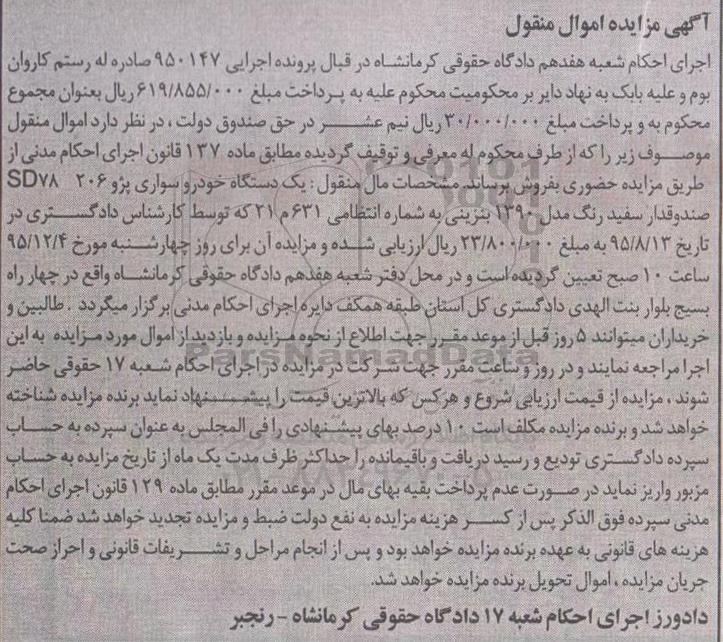 آگهی مزایده اموال منقول
اجرای احکام شعبه هفدهم دادگاه حقوقی کرمانشاه در قبال پرونده اجرایی ۹۵۰۱۴۷ صادره له رستم کاروان
بوم و علیه بابک به نهاد دایر بر محکومیت محکوم علیه به پرداخت مبلغ ۶۱۹/۸۵۵/۰۰۰ ریال بعنوان مجموع
محکوم به و پرداخت مبلغ ۳۰/۰۰۰/۰۰۰ ریال نیم عشر در حق صندوق دولت ، در نظر دارد اموال منقول
موصوف زیر را که از طرف محکوم له معرفی و توقیف گردیده مطابق ماده ۱۳۷ قانون اجرای احکام مدنی از
طریق مزایده حضوری بفروش برساند. مشخصات مال منقول : یک دستگاه خودرو سواری پژو ۲۰۶ SD۷۸
صندوقدار سفید رنگ مدل ۱۳۹۰ بنزینی به شماره انتظامی ۶۳۱ م ۲۱ که توسط کارشناس دادگستری در
تاریخ ۹۵/۸/۱۳ به مبلغ ۲۳/۸۰۰/۰۰۰ ریال ارزیابی شده و مزایده آن برای روز چهارشنبه مورخ ۹۵/۱۲/۴
ساعت ۱۰ صبح تعیین گردیده است و در محل دفتر شعبه هفدهم دادگاه حقوقی کرمانشاه واقع در چهار راه
بسیج بلوار بنت الهدی دادگستری کل استان طبقه همکف دایره اجرای احکام مدنی برگزار میگردد . طالبین و
خریداران میتوانند ۵ روز قبل از موعد مقرر جهت اطلاع از نحوه مزایده و بازدید از اموال مورد مزایده به این
اجرا مراجعه نمایند و در روز و ساعت مقرر جهت شرکت در مزایده در اجرای احکام شعبه ۱۷ حقوقی حاضر
شوند ، مزایده از قیمت ارزیابی شروع و هرکس که بالاترین قیمت را پیشنهاد نماید برنده مزایده شناخته
خواهد شد و برنده مزایده مکلف است ۱۰ درصد بهای پیشنهادی را فی المجلس به عنوان سپرده به حساب
سپرده دادگستری تودیع و رسید دریافت و باقیمانده را حداکثر ظرف مدت یک ماه از تاریخ مزایده به حساب
مزبور واریز نماید در صورت عدم پرداخت بقیه بهای مال در موعد مقرر مطابق ماده ۱۲۹ قانون اجرای احکام
مدنی سپرده فوق الذکر پس از کسر هزینه مزایده به نفع دولت ضبط و مزایده تجدید خواهد شد ضمنا کلیه
هزینه های قانونی به عهده برنده مزایده خواهد بود و پس از انجام مراحل و تشریفات قانونی و احراز صحت
جریان مزایده ، اموال تحویل برنده مزایده خواهد شد.
دادورز اجرای احکام شعبه ۱۷ دادگاه حقوقی کرمانشاه - رنجبر
ParsNamadData